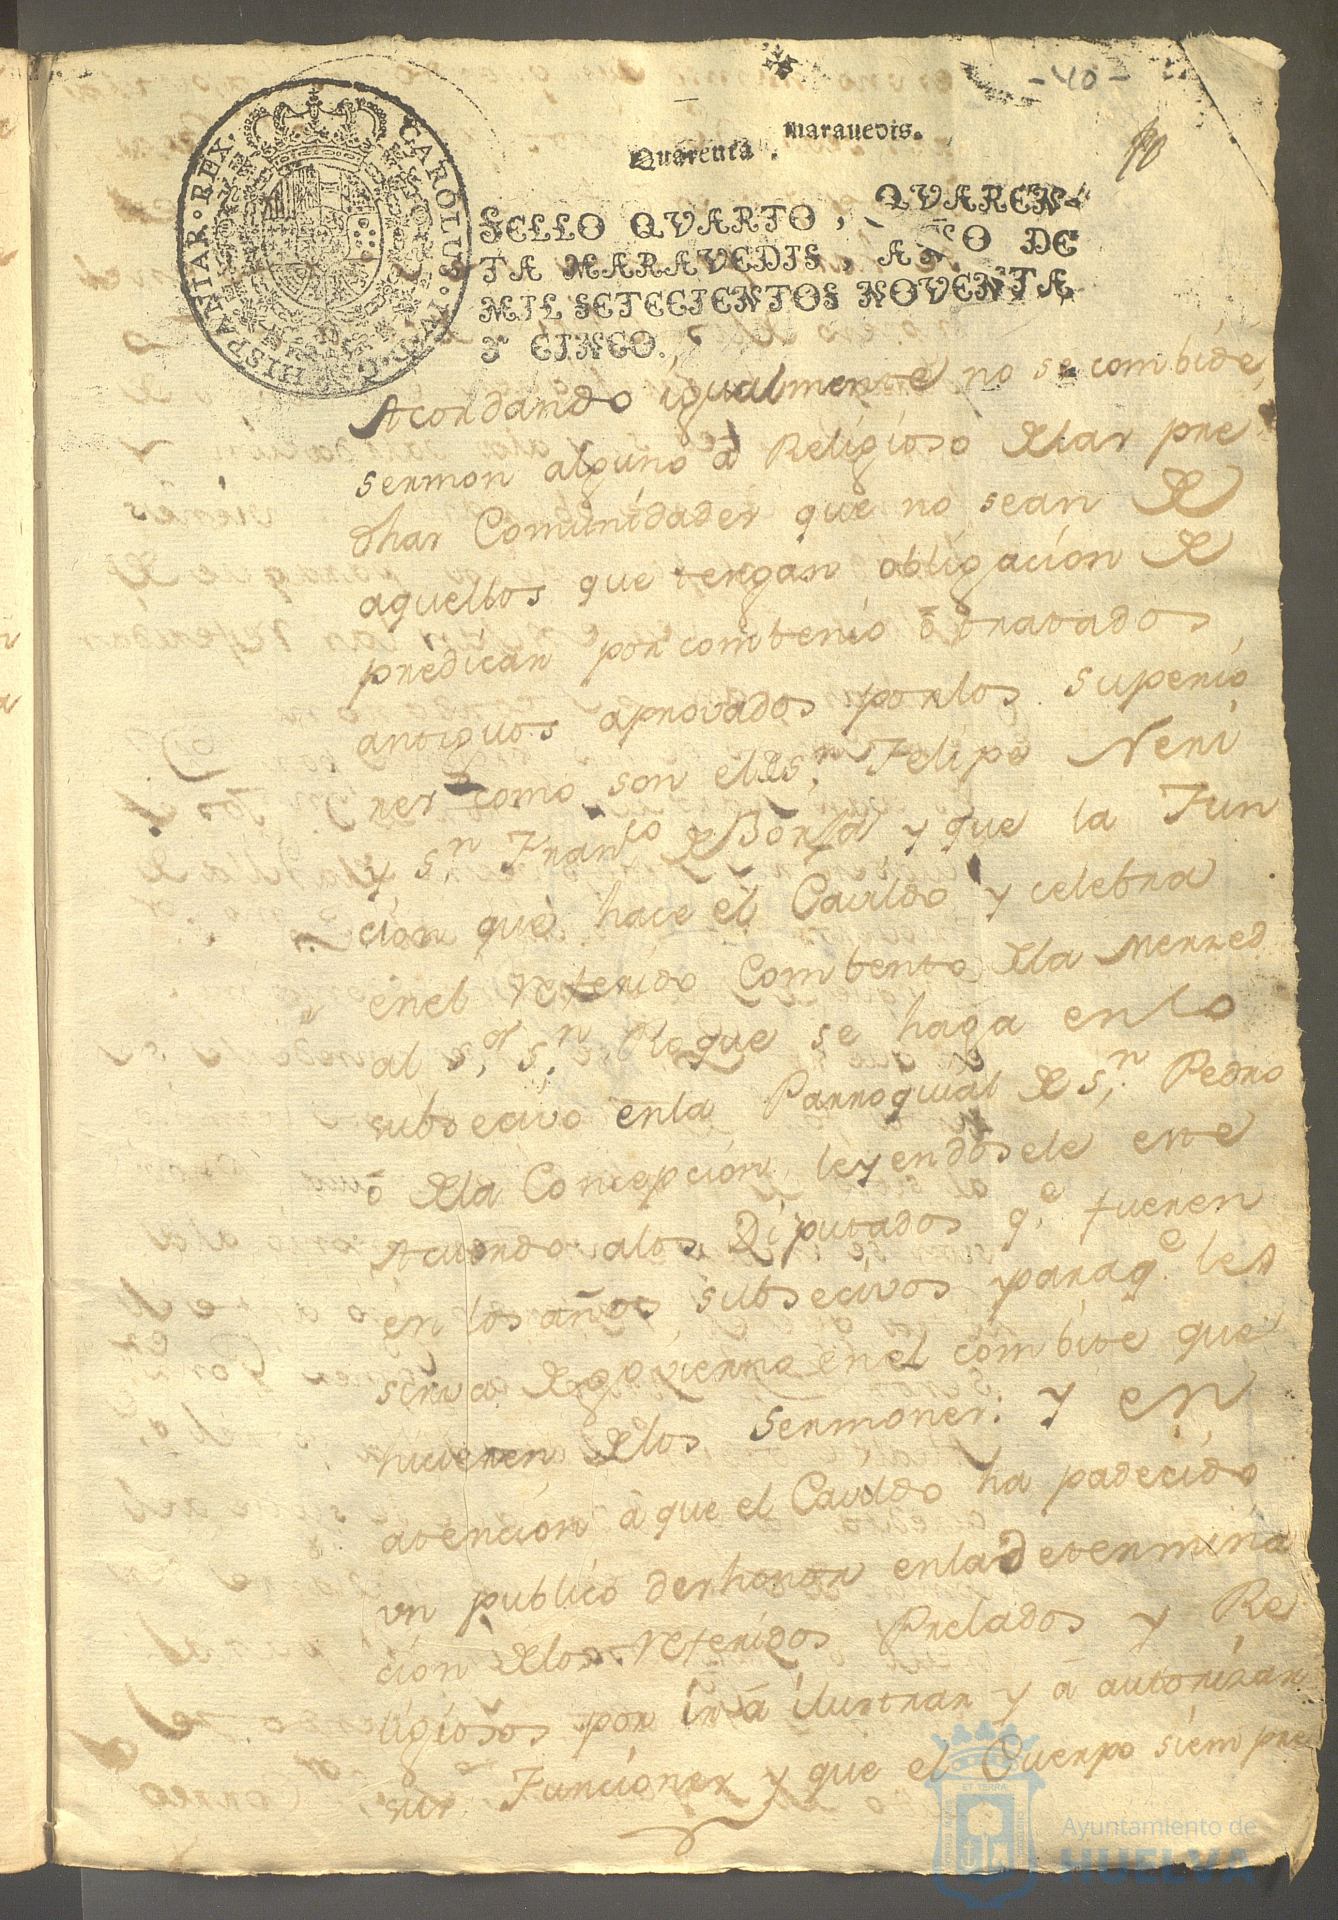 - 40 -
40
Quarenta marauedis.
CAROLUS · IV · D · G · HISPANIAR · REX ·
SELLO QVARTO, QVAREN-
TA MARAVEDIS, AÑO DE
MIL SETECIENTOS NOVENTA
Y CINCO.
Acordando igualmente no se combide
sermon alguno á Religioso dlas pre
dhas Comunidades que no sean de
aquellos que tengan obligacion de
predicar por combenio ó tratados
antiguos aprovados por los superio
res como son el de Sn. Felipe Neri
y Sn. Franco de Borja y que la Fun
cion que hace el Cavildo y celebra
en el referido Combento dla Merzed
al Sor. Sn. Roque se haga en lo
subsecivo en la Parroquial de Sn. Pedro
ó dla Concepcion leyendosele este
Acuerdo a los Diputados qe. fueren
en los años subsecivos para qe. les
sirva de govierno en el combite que
hicieren dlos Sermones: y en
atencion á que el Cavildo ha padecido
un publico deshonor en la determina
cion dlos referidos Prelados y Re
ligiosos por ir á ilustrar y á autorizar
sus Funciones y que el Cuerpo siempre
Ayuntamiento de
HUELVA